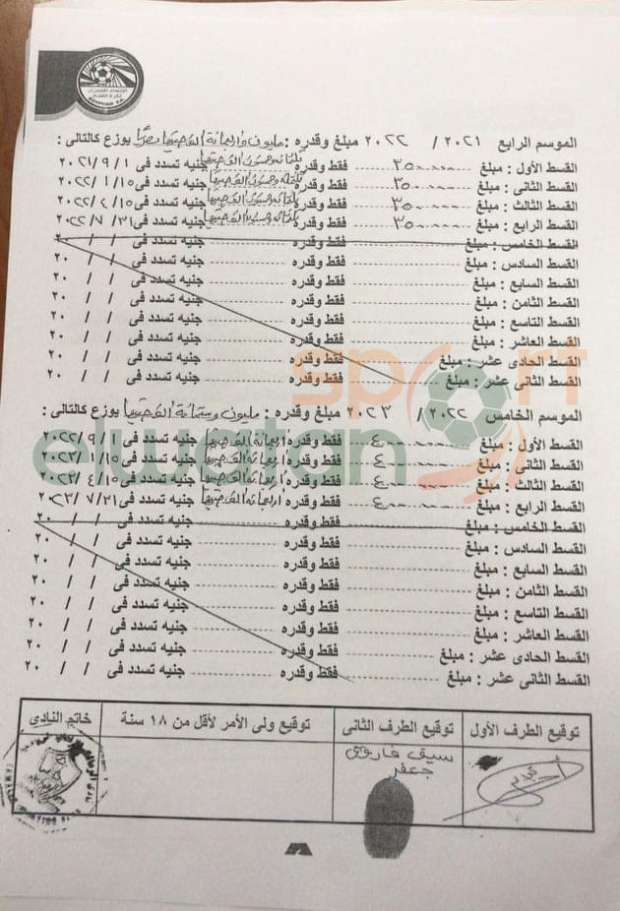 الموسم الرابع ٢٠٢١ / ٢٠٢٢ مبلغ وقدره : مليون وأربعمائة ألف جنيها مصريا يوزع كالتالى :
القسط الأول : مبلغ ٣٥٠٠٠٠ فقط وقدره ثلثمائة وخمسون ألف جنيها جنيه تسدد فى ٢٠٢١/٩/١
القسط الثانى : مبلغ ٣٥٠٠٠٠ فقط وقدره ثلثمائة وخمسون ألف جنيها جنيه تسدد فى ٢٠٢٢/١/١٥
القسط الثالث : مبلغ ٣٥٠٠٠٠ فقط وقدره ثلثمائة وخمسون ألف جنيها جنيه تسدد فى ٢٠٢٢/٤/١٥
القسط الرابع : مبلغ ٣٥٠٠٠٠ فقط وقدره ثلثمائة وخمسون ألف جنيها جنيه تسدد فى ٢٠٢٢/٧/٣١
القسط الخامس : مبلغ فقط وقدره جنيه تسدد فى / / ٢٠
القسط السادس : مبلغ فقط وقدره جنيه تسدد فى / / ٢٠
القسط السابع : مبلغ فقط وقدره جنيه تسدد فى / / ٢٠
القسط الثامن : مبلغ فقط وقدره جنيه تسدد فى / / ٢٠
القسط التاسع : مبلغ فقط وقدره جنيه تسدد فى / / ٢٠
القسط العاشر : مبلغ فقط وقدره جنيه تسدد فى / / ٢٠
القسط الحادى عشر : مبلغ فقط وقدره جنيه تسدد فى / / ٢٠
القسط الثانى عشر : مبلغ فقط وقدره جنيه تسدد فى / / ٢٠
الموسم الخامس ٢٠٢٢ / ٢٠٢٣ مبلغ وقدره : مليون وستمائة ألف جنيها يوزع كالتالى :
القسط الأول : مبلغ ٤٠٠٠٠٠ فقط وقدره أربعمائة ألف جنيها جنيه تسدد فى ٢٠٢٢/٩/١
القسط الثانى : مبلغ ٤٠٠٠٠٠ فقط وقدره أربعمائة ألف جنيها جنيه تسدد فى ٢٠٢٣/١/١٥
القسط الثالث : مبلغ ٤٠٠٠٠٠ فقط وقدره أربعمائة ألف جنيها جنيه تسدد فى ٢٠٢٣/٤/١٥
القسط الرابع : مبلغ ٤٠٠٠٠٠ فقط وقدره أربعمائة ألف جنيها جنيه تسدد فى ٢٠٢٣/٧/٣١
القسط الخامس : مبلغ فقط وقدره جنيه تسدد فى / / ٢٠
القسط السادس : مبلغ فقط وقدره جنيه تسدد فى / / ٢٠
القسط السابع : مبلغ فقط وقدره جنيه تسدد فى / / ٢٠
القسط الثامن : مبلغ فقط وقدره جنيه تسدد فى / / ٢٠
القسط التاسع : مبلغ فقط وقدره جنيه تسدد فى / / ٢٠
القسط العاشر : مبلغ فقط وقدره جنيه تسدد فى / / ٢٠
القسط الحادى عشر : مبلغ فقط وقدره جنيه تسدد فى / / ٢٠
القسط الثانى عشر : مبلغ فقط وقدره جنيه تسدد فى / / ٢٠
sport
elwatan
توقيع الطرف الأول توقيع الطرف الثانى توقيع ولى الأمر لأقل من ١٨ سنة خاتم النادى
سيف فاروق
جعفر
٨